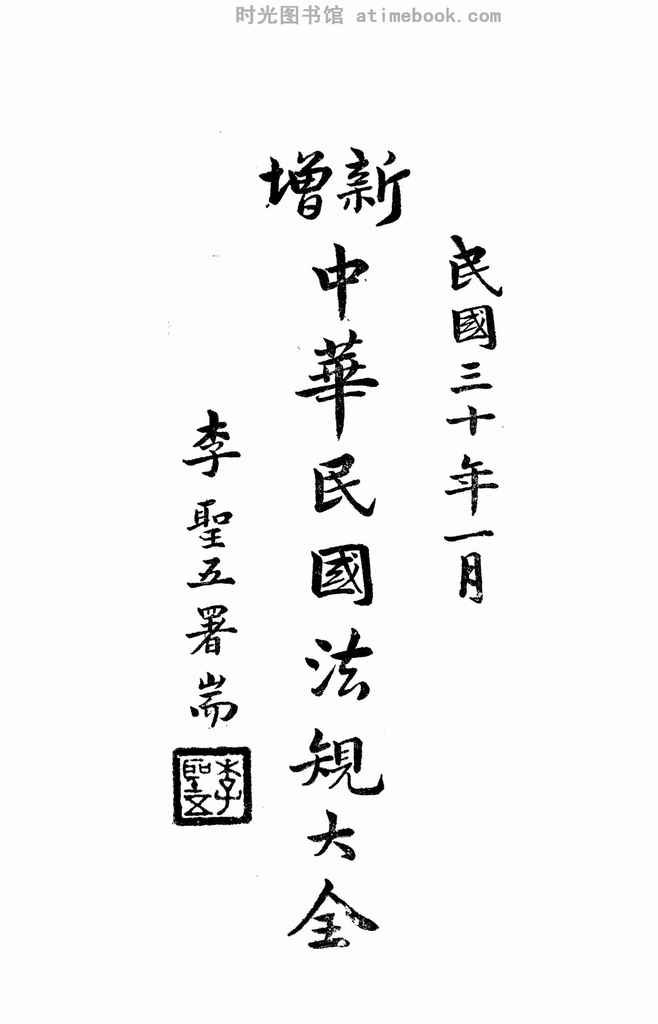 时光图书馆 atimebook.com
民國三十年一月
新增
中華民國法規大全
李聖五署耑
李聖五